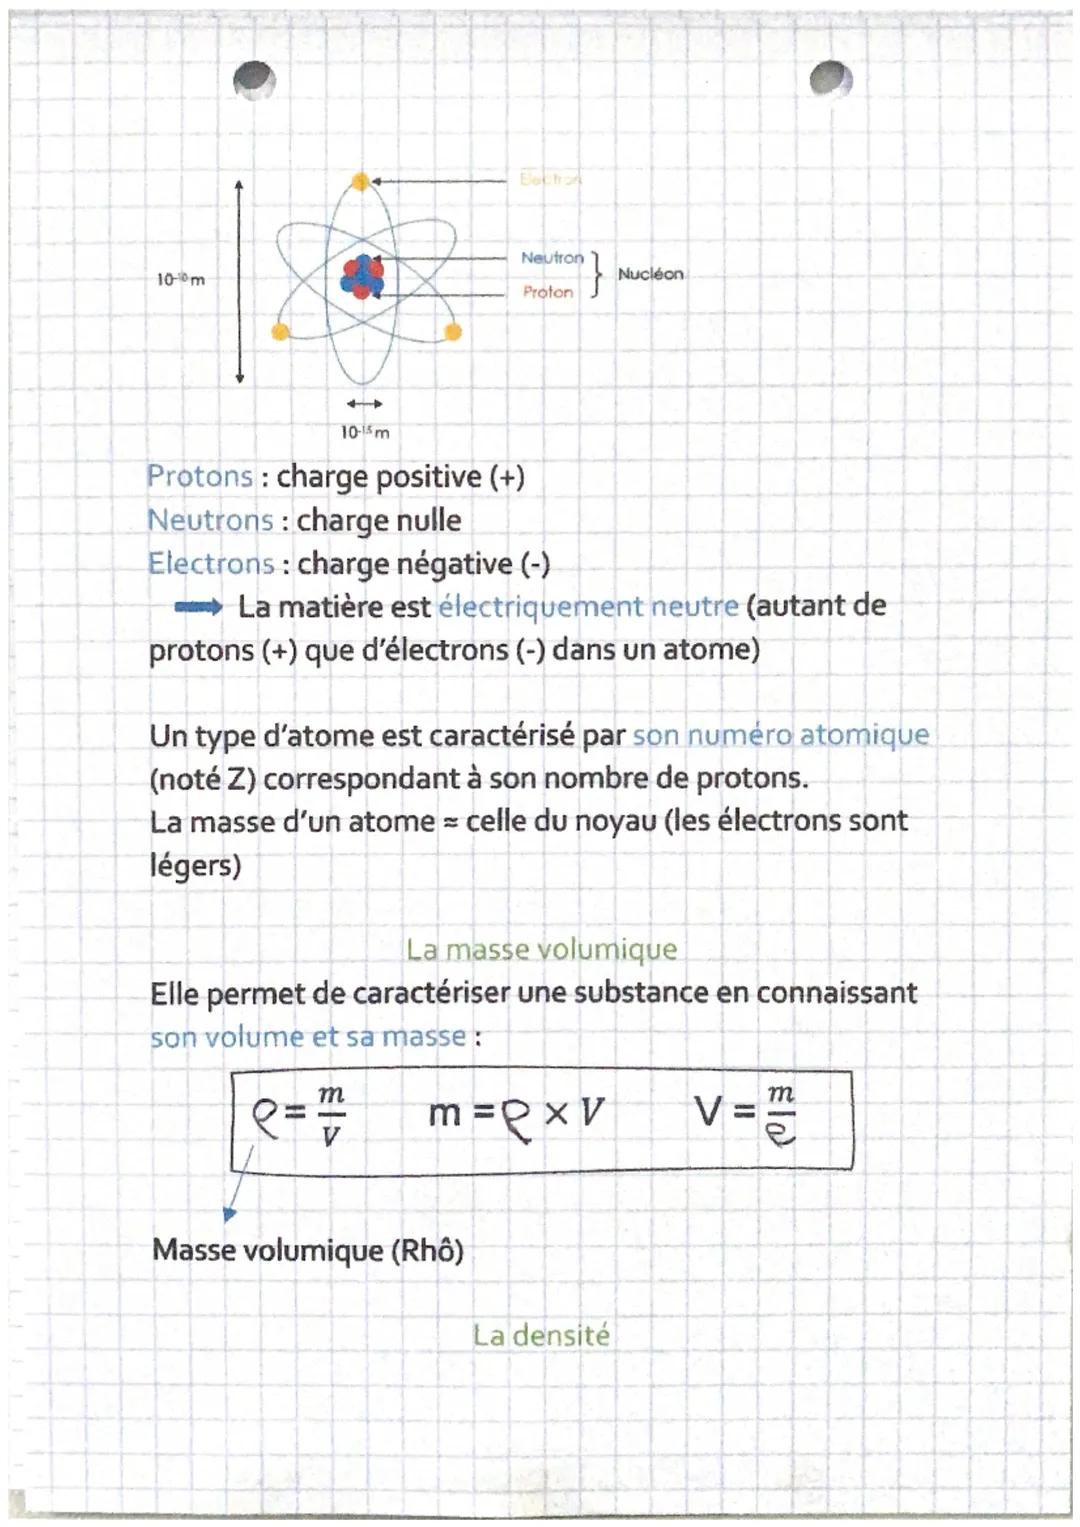 Electron
Neutron
Nucléon
Proton
10-¹⁰ m
10-¹⁵ m
Protons : charge positive (+)
Neutrons : charge nulle
Electrons : charge négative (-)
La matière est électriquement neutre (autant de
protons (+) que d'électrons (-) dans un atome)
Un type d'atome est caractérisé par son numéro atomique
(noté Z) correspondant à son nombre de protons.
La masse d'un atome ≈ celle du noyau (les électrons sont
légers)
La masse volumique
Elle permet de caractériser une substance en connaissant
son volume et sa masse :
ρ = m/V    m = ρ × V    V = m/ρ
Masse volumique (Rhô)
La densité